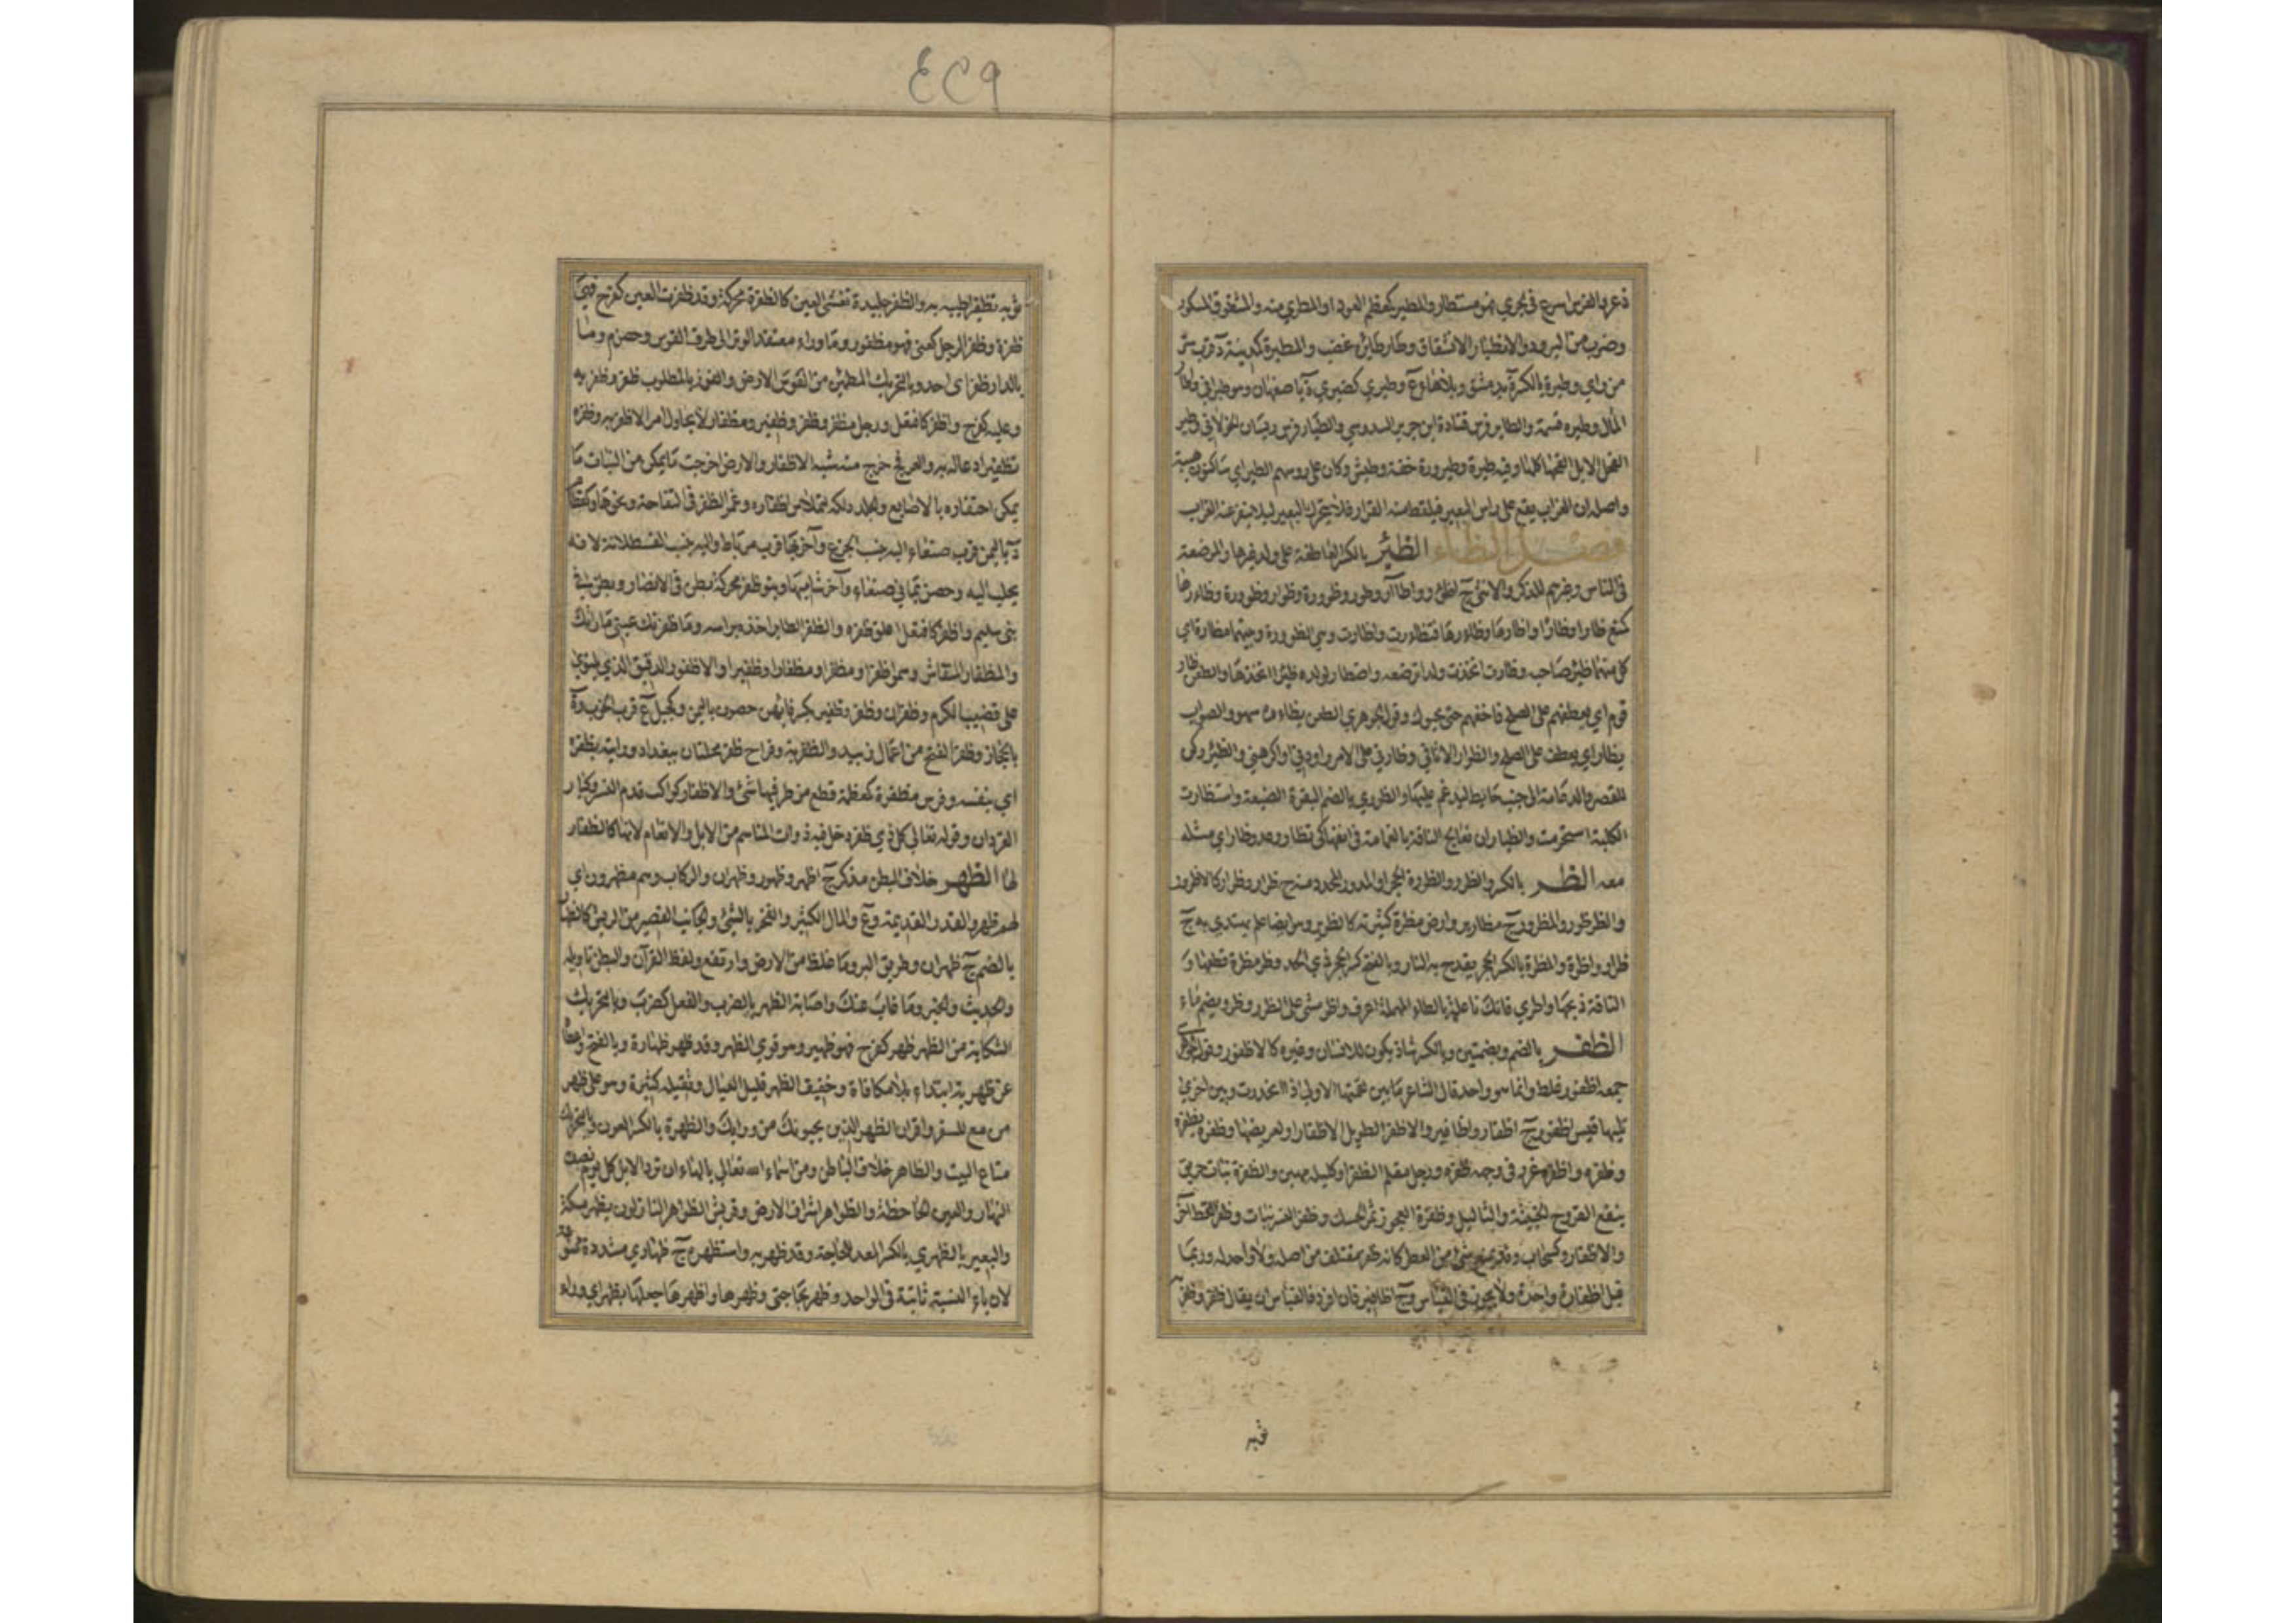 ذعر والفرس اسرع في الجري فهو مستطار والمطير كمعظم العود او المطرى منه والمشقوق المكسور
وضرب من البرود والانطيار الانشقاق وطار طائره غضب والمطيرة كمدينة ة قرب سر
من راي وطيرة بالكسرة ة بدمشق وبلا هاء ع وطيرى كضيزى ة باصفهان وهو طيراني واطار
المال وطيره قسمه والطاير فرس قتادة ابن جرير السدوسي والطيار فرس ريسان الخولاني وطير
الفحل الابل القحها كلها وفيه طيرة وطيرورة خفة وطيش وكان على روسهم الطير اي ساكنون هيبة
واصله ان الغراب يقع على راس البعير فيلقط منه القراد فلا يتحرك البعير ليلا ينفر عنه الغراب
فصل الظاء الظئر بالكسر العاطفة على ولد غيرها المرضعة
في الناس وغيرهم للذكر والانثى ج اظؤر واظآر وظور وظورة وظوار وظورة وظارها
كمنع ظارا وظئارا واظارها وظاءرها فتظاءرت واظارت وهي الظؤرة وبينهما مظارة اي
كل منهما ظئر صاحبه وظارت اتخذت ولدا ترضعه واظطار لولده ظئرا اتخذها والطعن ظار
قوم اي يعطفهم على الصلح فاخفهم حتى يحبوك وقول الجوهري الطعن يظاره سهو والصواب
يظار اي يعطف على الصلح والظوار الاثافي وظارني على الامر راودني او اكرهني والظئر ركن
للقصر والدعامة الى جنب حايط ليدعم عليها والظؤرى بالضم البقرة الضبعة واستظارت
الكلبة استحرمت والظئار ان تعالج الناقة بالغمامة في انفها كي تظار وعدو ظار اي مثله
معه الظر بالكسر والظرر والظررة الحجر او المدور المحدد منه ج ظرار وظرار كالاظرور
والظرظور والمظرور ج مظارير وارض مظرة كثيرته كالظرير وهو ايضا علم يهتدى به ج
ظران واظرة والمظرة بالكسر الحجر يقدح به النار وبالفتح كسر الحجر ذي الحد وظر مظرة قطعها و
الناقة ذبحها واظري فانك ناعلة بالطاء المهملة اعرف واظر مشى على الظرر وظر ويضم ماء
الظفر بالضم وبضمتين وبالكسر شاذ يكون للانسان وغيره كالاظفور وقول الجوهري
جمعه اظفور غلط وانما هو واحد قال الشاعر ما بين لقمتها الاولى اذا انحدرت وبين اخرى
تليها قيس اظفور ج اظفار واظافير والاظفر الطويل الاظفار العريضها وظفره يظفره
وظفره واظفره غرز في وجهه ظفره ورجل مقلم الظفر او كليله مهين والظفرة نبات حريف
ينفع القروح الخبيثة والثآليل وظفرة العجوز ثمر الحسك وظفر النسر نبات وظفر القط آخر
والاظفار وكسحاب وقد يمنع شئ من العطر كانه ظفر مقتلف من اصله ولا واحد له وربما
قيل اظفارة واحدة ولا يجوز في القياس وج اظافير فان افرد فالقياس ان يقال ظفر وظفر
٤٢٩
ثوبه تظفيرا طيبه به والظفر جليدة تغشى العين كالظفرة محركة وقد ظفرت العين كفرح فهي
ظفرة وظفر الرجل كعني فهو مظفور وما وراء معقد الوتر الى طرف القوس وحصن وما
بالدار ظفر اى احد وبالتحريك المطمئن من الارض والفوز بالمطلوب ظفره وظفر به
وعليه كفرح واظفر كافتعل ورجل مظفر وظفر وظفير ومظفار لا يحاول امرا الا ظفر به وظفره
تظفيرا دعا له به والعرفج خرج منه شبه الاظفار والارض اخرجت ما يمكن من النبات ما
يمكن احتفاره بالاصابع والجلد دلكه لتملاس اظفاره وغمز الظفر في التفاحة ونحوها وكقطام
د باليمن قرب صنعاء اليه ينسب الجزع وآخر بها قرب مرباط واليه ينسب القسط لانه
يجلب اليه وحصن يماني صنعاء وآخر شاميها وبنو ظفر محركة بطن في الانصار وبطن في
بني سليم واظفر كافتعل اعلق ظفره والظفر الطاير اخذه براسه وما ظفرتك عيني ما راتك
والمظفار المنقاش وسموا ظفرا ومظفرا ومظفارا وظفيرا والاظفور الدقيق الذي يلتوي
على قضيب الكرم وظفران وظفر وظفير بكسر فائهن حصون باليمن وكجبل ع قرب الحوءب وة
بالحجاز وظفر الفنج من اعمال زبيد والظفرية وقراح ظفر محلتان ببغداد ورايته بظفره
اي بنفسه وقوس مظفرة كمعظمة قطع من طرفيها شئ والاظفار كواكب قدام النسر وكبار
القردان وقوله تعالى كل ذي ظفر دخل فيه ذوات المناسم من الابل والانعام لانها كالاظفار
لها الظهر خلاف البطن مذكر ج اظهر وظهور وظهران والركاب وهم مظهرون اي
لهم ظهر والقدر القديمة وع والمال الكثير والفخر بالشئ والجانب القصير من الريش كالظهار
بالضم ج ظهران وطريق البر وما غلظ من الارض وارتفع ولفظ القرآن والبطن تاويله
والحديث والخبر وما غاب عنك واصابة الظهر بالضرب والفعل كضرب وبالتحريك
الشكاية من الظهر ظهر كفرح فهو ظهير وهو قوي الظهر وقد ظهر ظهارة وبالفتح واعطاه
عن ظهر يد ابتداء بلا مكافاة وخفيف الظهر قليل العيال وثقيله كثيره وهو على ظهر
مزمع للسفر واقران الظهر الذين يجيونك من ورايك والظهرة بالكسر العون وبالتحريك
متاع البيت والظاهر خلاف الباطن ومن اسماء الله تعالى بالهاء ان ترد الابل كل يوم نصف
النهار والعين الجاحظة والظواهر اشراف الارض وقريش الظواهر النازلون بظهر مكة
والبعير الظهري بالكسر المعد للحاجة وقد ظهر به واستظهره ج ظهاري مشددة ممنوعة
لان ياء النسبة ثابتة في الواحد وظهر بحاجتي وظهرها واظهرها جعلها بظهر اي وراء